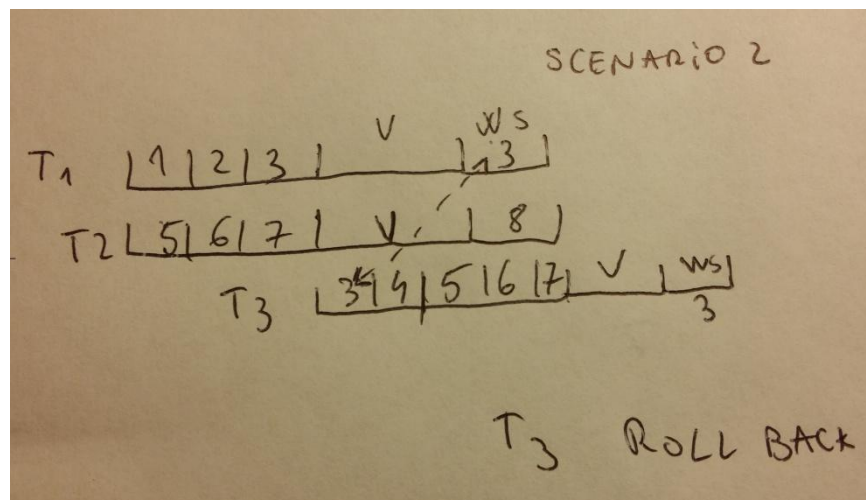 SCENARIO 2
V WS
T1 1 2 3 3
T2 5 6 7 V 8
T3 3 4 5 6 7 V WS
3
T3 ROLL BACK